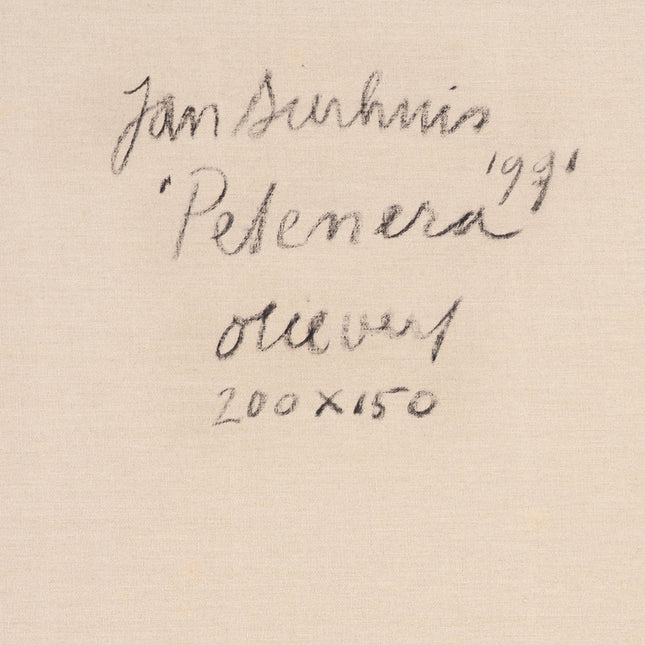 Jan Sierhuis
'Petenera '99'
olieverf
200 x 150